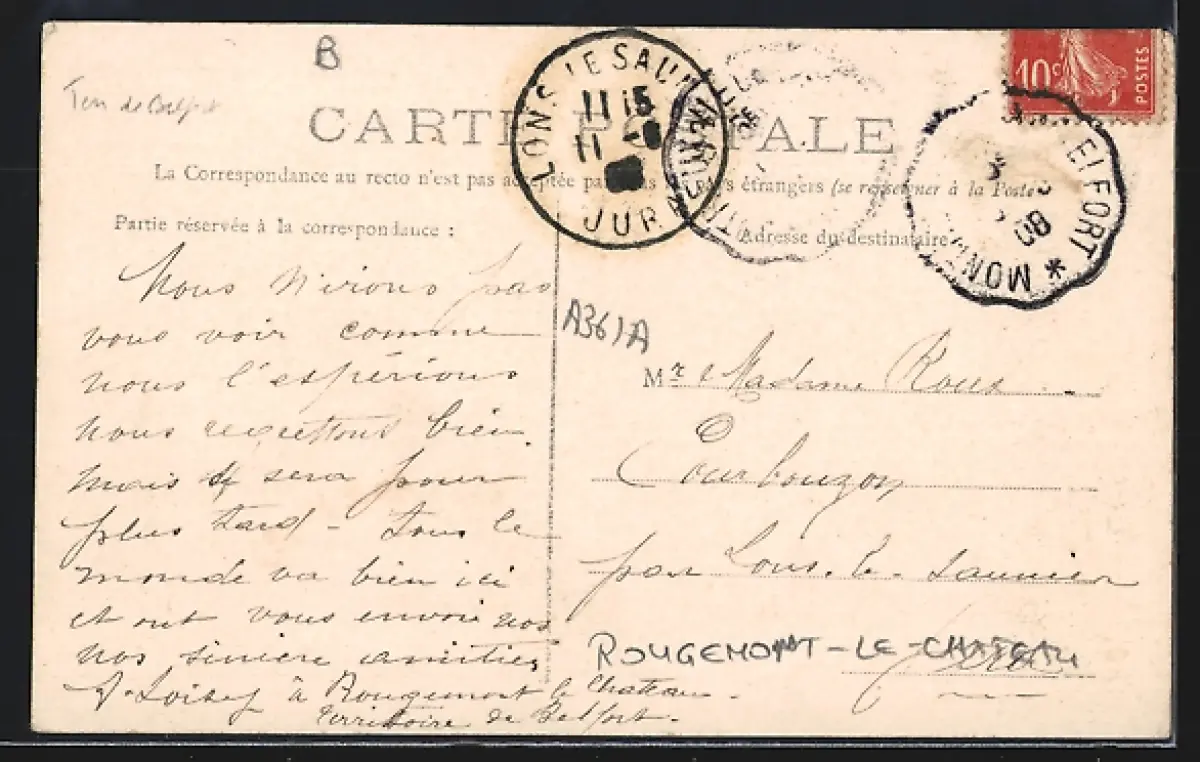 B
Terr de Belfort
10c
POSTES
CARTE POSTALE
LONS-LE-SAUNIER
11 15
11 -8
JURA
BELFORT * MON
08
La Correspondance au recto n'est pas acceptée par tous les pays étrangers (se renseigner à la Poste)
Partie réservée à la correspondance :
Adresse du destinataire
Nous n'irons pas
vous voir comme
nous l'espérions
nous regrettons bien.
mais se sera pour
plus tard - Tous le
monde va bien ici
et ont vous envoie nos
nos sincère amitiés
A. Loisey à Rougemont le Chateau -
Territoire de Belfort.
A361A
Mr & Madame Roux
Courbouzon
par Lons-le-Saunier
ROUGEMONT-LE-CHATEAU